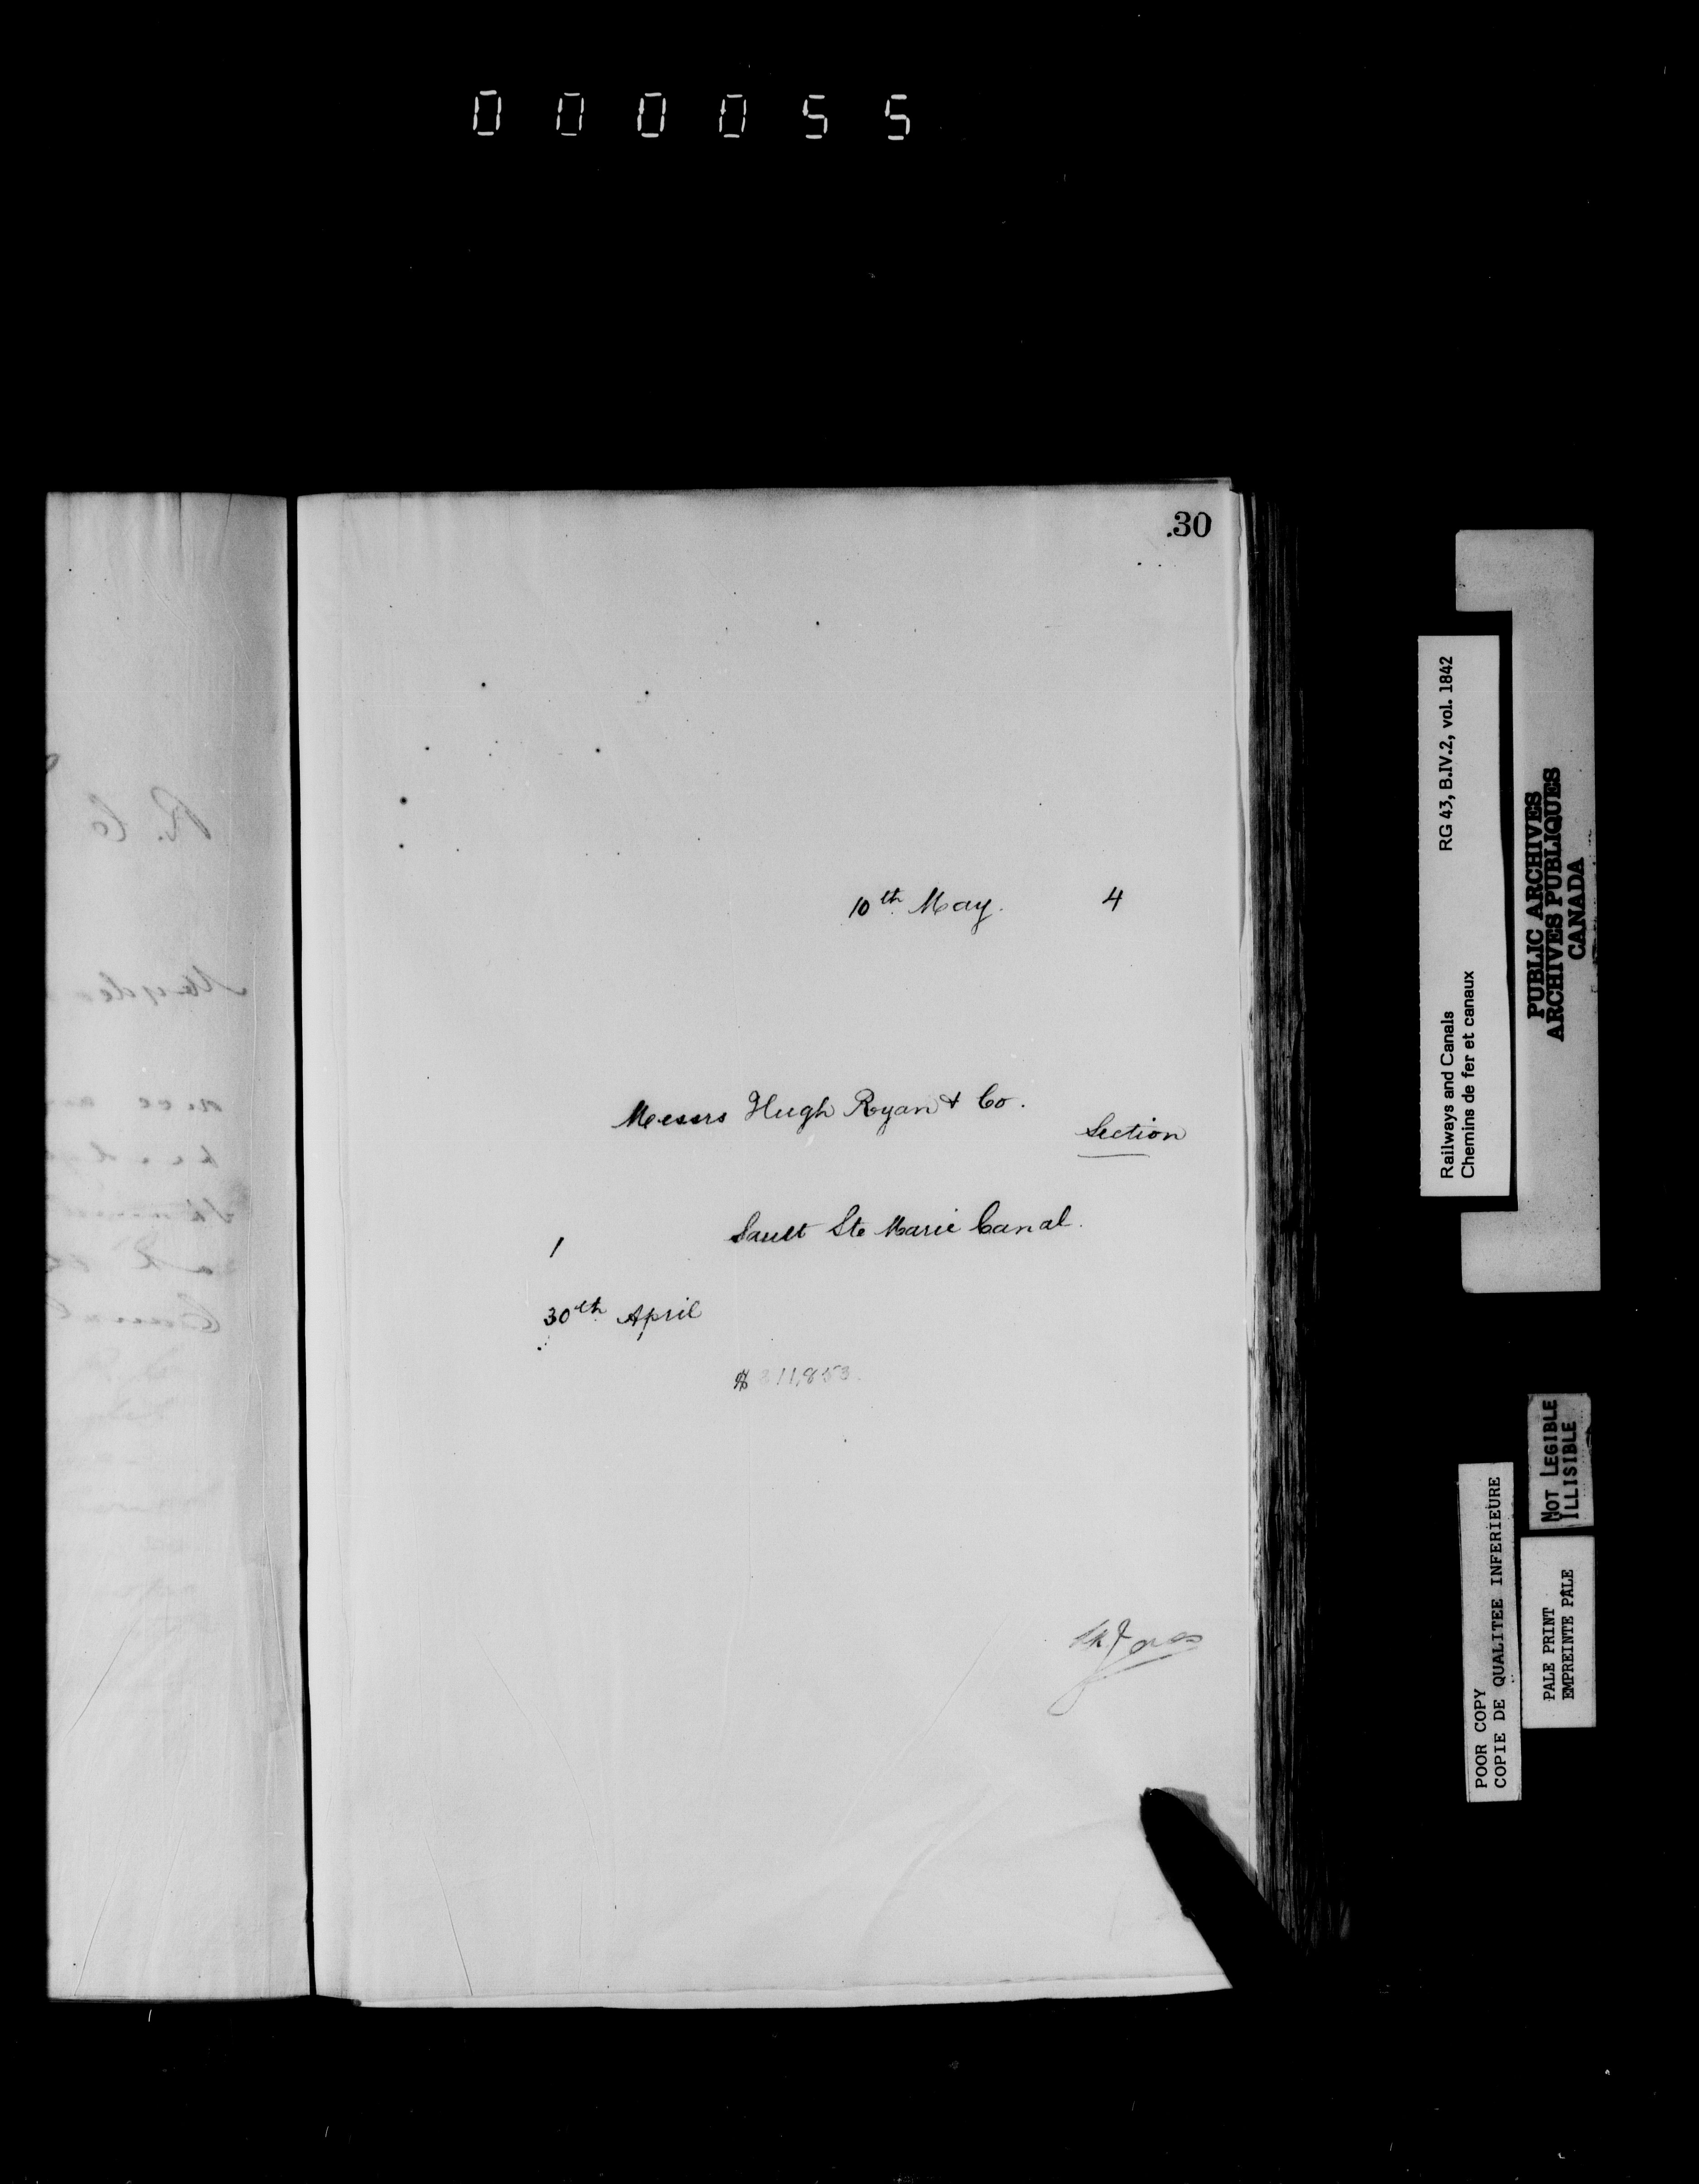 000055
30
10th May. 4
Messrs Hugh Ryan & Co.
Section
Sault Ste Marie Canal.
1
30th April
$ 311,853.
R. Co
Railways and Canals RG 43, B.IV.2, vol. 1842
Chemins de fer et canaux
PUBLIC ARCHIVES
ARCHIVES PUBLIQUES
CANADA
NOT LEGIBLE
ILLISIBLE
POOR COPY
COPIE DE QUALITEE INFERIEURE
PALE PRINT
EMPREINTE PÂLE